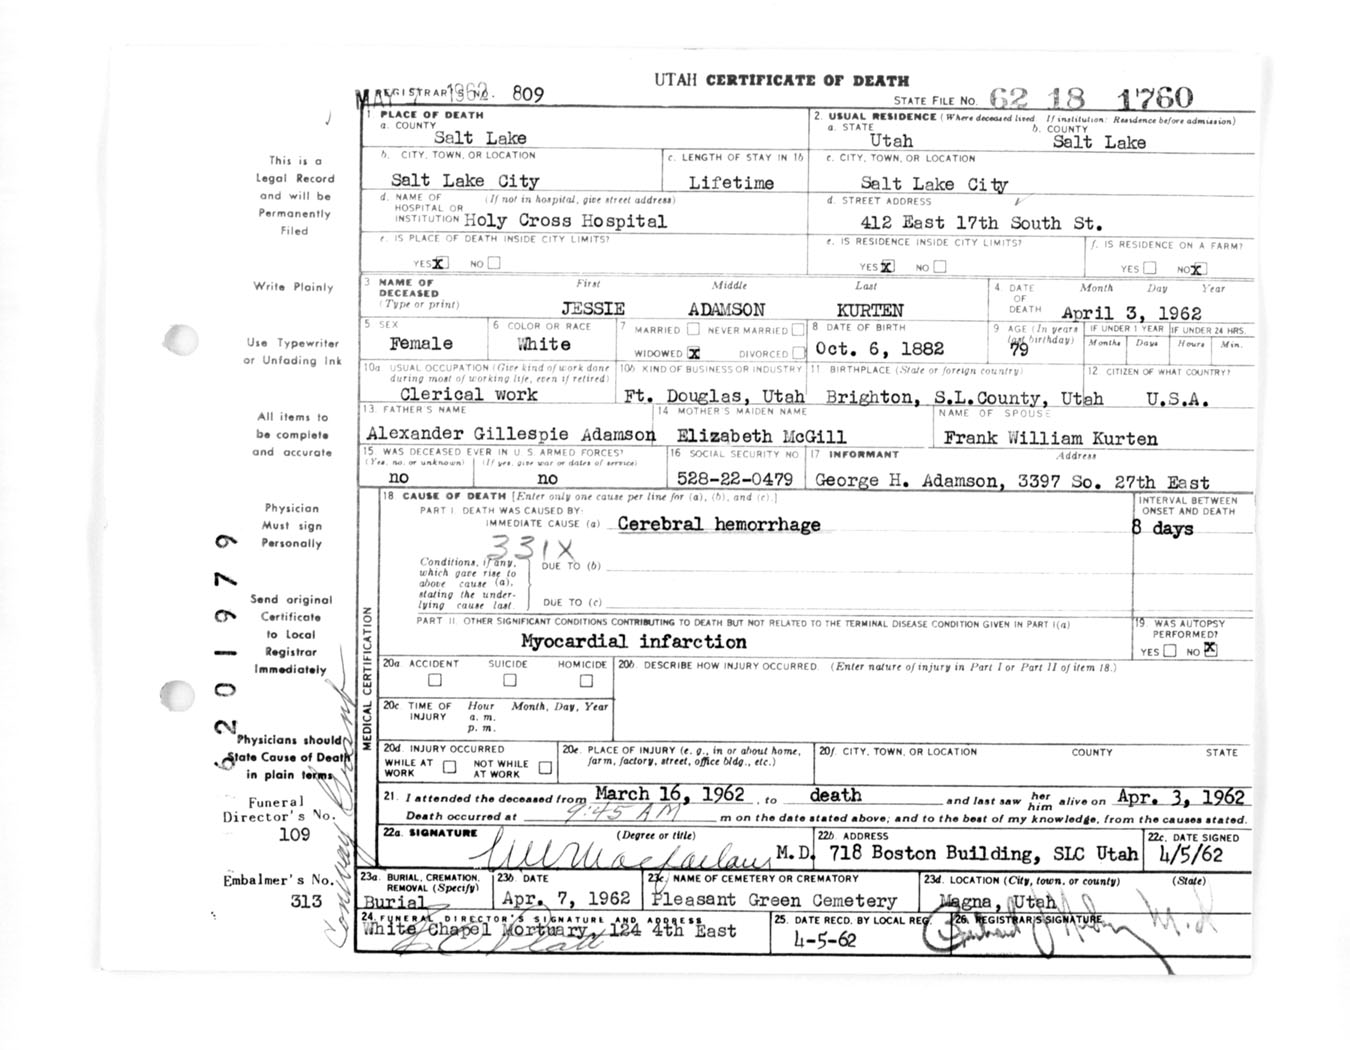 UTAH CERTIFICATE OF DEATH
MAY 7 1962
REGISTRAR'S NO. 809
STATE FILE NO. 62 18 1760
1 PLACE OF DEATH
a. COUNTY
Salt Lake
2. USUAL RESIDENCE (Where deceased lived. If institution: Residence before admission)
a. STATE b. COUNTY
Utah Salt Lake
b. CITY, TOWN, OR LOCATION c. LENGTH OF STAY IN 1b c. CITY, TOWN, OR LOCATION
Salt Lake City Lifetime Salt Lake City
d. NAME OF HOSPITAL OR INSTITUTION (If not in hospital, give street address)
Holy Cross Hospital
d. STREET ADDRESS
412 East 17th South St.
e. IS PLACE OF DEATH INSIDE CITY LIMITS?
YES X NO
e. IS RESIDENCE INSIDE CITY LIMITS? f. IS RESIDENCE ON A FARM?
YES X NO YES NO X
3 NAME OF DECEASED (Type or print) First Middle Last
JESSIE ADAMSON KURTEN
4 DATE OF DEATH Month Day Year
April 3, 1962
5 SEX
Female
6 COLOR OR RACE
White
7 MARRIED NEVER MARRIED
WIDOWED X DIVORCED
8 DATE OF BIRTH
Oct. 6, 1882
9 AGE (In years last birthday)
79
IF UNDER 1 YEAR IF UNDER 24 HRS.
Months Days Hours Min.
10a USUAL OCCUPATION (Give kind of work done during most of working life, even if retired)
Clerical work
10b KIND OF BUSINESS OR INDUSTRY
Ft. Douglas, Utah
11 BIRTHPLACE (State or foreign country)
Brighton, S.L.County, Utah
12 CITIZEN OF WHAT COUNTRY?
U.S.A.
13. FATHER'S NAME
Alexander Gillespie Adamson
14 MOTHER'S MAIDEN NAME
Elizabeth McGill
NAME OF SPOUSE
Frank William Kurten
15 WAS DECEASED EVER IN U.S. ARMED FORCES?
(Yes, no, or unknown) (If yes, give war or dates of service)
no no
16 SOCIAL SECURITY NO
528-22-0479
17 INFORMANT Address
George H. Adamson, 3397 So. 27th East
MEDICAL CERTIFICATION
18 CAUSE OF DEATH [Enter only one cause per line for (a), (b), and (c).]
PART I. DEATH WAS CAUSED BY:
IMMEDIATE CAUSE (a) Cerebral hemorrhage
INTERVAL BETWEEN ONSET AND DEATH
8 days
331X
Conditions, if any, which gave rise to above cause (a), stating the underlying cause last.
DUE TO (b)
DUE TO (c)
PART II. OTHER SIGNIFICANT CONDITIONS CONTRIBUTING TO DEATH BUT NOT RELATED TO THE TERMINAL DISEASE CONDITION GIVEN IN PART I(a)
Myocardial infarction
19. WAS AUTOPSY PERFORMED?
YES NO X
20a ACCIDENT SUICIDE HOMICIDE
20b. DESCRIBE HOW INJURY OCCURRED. (Enter nature of injury in Part I or Part II of item 18.)
20c TIME OF INJURY Hour Month, Day, Year
a. m.
p. m.
20d. INJURY OCCURRED
WHILE AT WORK NOT WHILE AT WORK
20e. PLACE OF INJURY (e. g., in or about home, farm, factory, street, office bldg., etc.)
20f. CITY, TOWN, OR LOCATION COUNTY STATE
21. I attended the deceased from March 16, 1962, to death and last saw her him alive on Apr. 3, 1962
Death occurred at 9:45 AM m on the date stated above; and to the best of my knowledge, from the causes stated.
22a. SIGNATURE (Degree or title)
M.D.
22b. ADDRESS
718 Boston Building, SLC Utah
22c. DATE SIGNED
4/5/62
23a. BURIAL, CREMATION, REMOVAL (Specify)
Burial
23b. DATE
Apr. 7, 1962
23c. NAME OF CEMETERY OR CREMATORY
Pleasant Green Cemetery
23d. LOCATION (City, town, or county) (State)
Magna, Utah
24. FUNERAL DIRECTOR'S SIGNATURE AND ADDRESS
White Chapel Mortuary, 124 4th East
25. DATE RECD. BY LOCAL REG.
4-5-62
26. REGISTRAR'S SIGNATURE
This is a
Legal Record
and will be
Permanently
Filed
Write Plainly
Use Typewriter
or Unfading Ink
All items to
be complete
and accurate
Physician
Must sign
Personally
Send original
Certificate
to Local
Registrar
Immediately
Physicians should
State Cause of Death
in plain terms
Funeral
Director's No.
109
Embalmer's No.
313